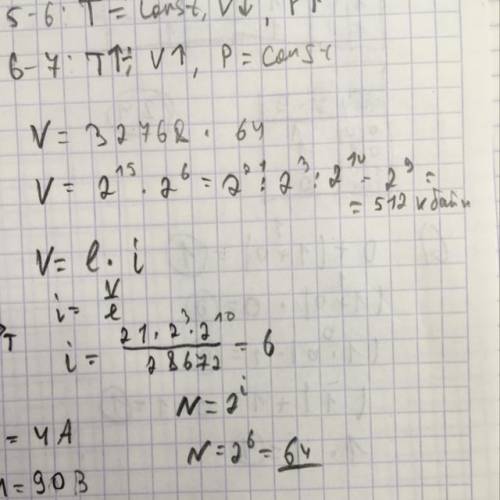 5-6: T = const, V↓, P↑
6-7: T↑, V↑, P = const
V = 32768 · 64
V = 2¹⁵ · 2⁶ = 2²¹ : 2³ : 2¹⁰ = 2⁹ =
= 512 кбайт
V = l · i
i = V/l
i = 21 · 2³ · 2¹⁰ / 28672 = 6
N = 2ⁱ
N = 2⁶ = 64
= 4A
= 90B